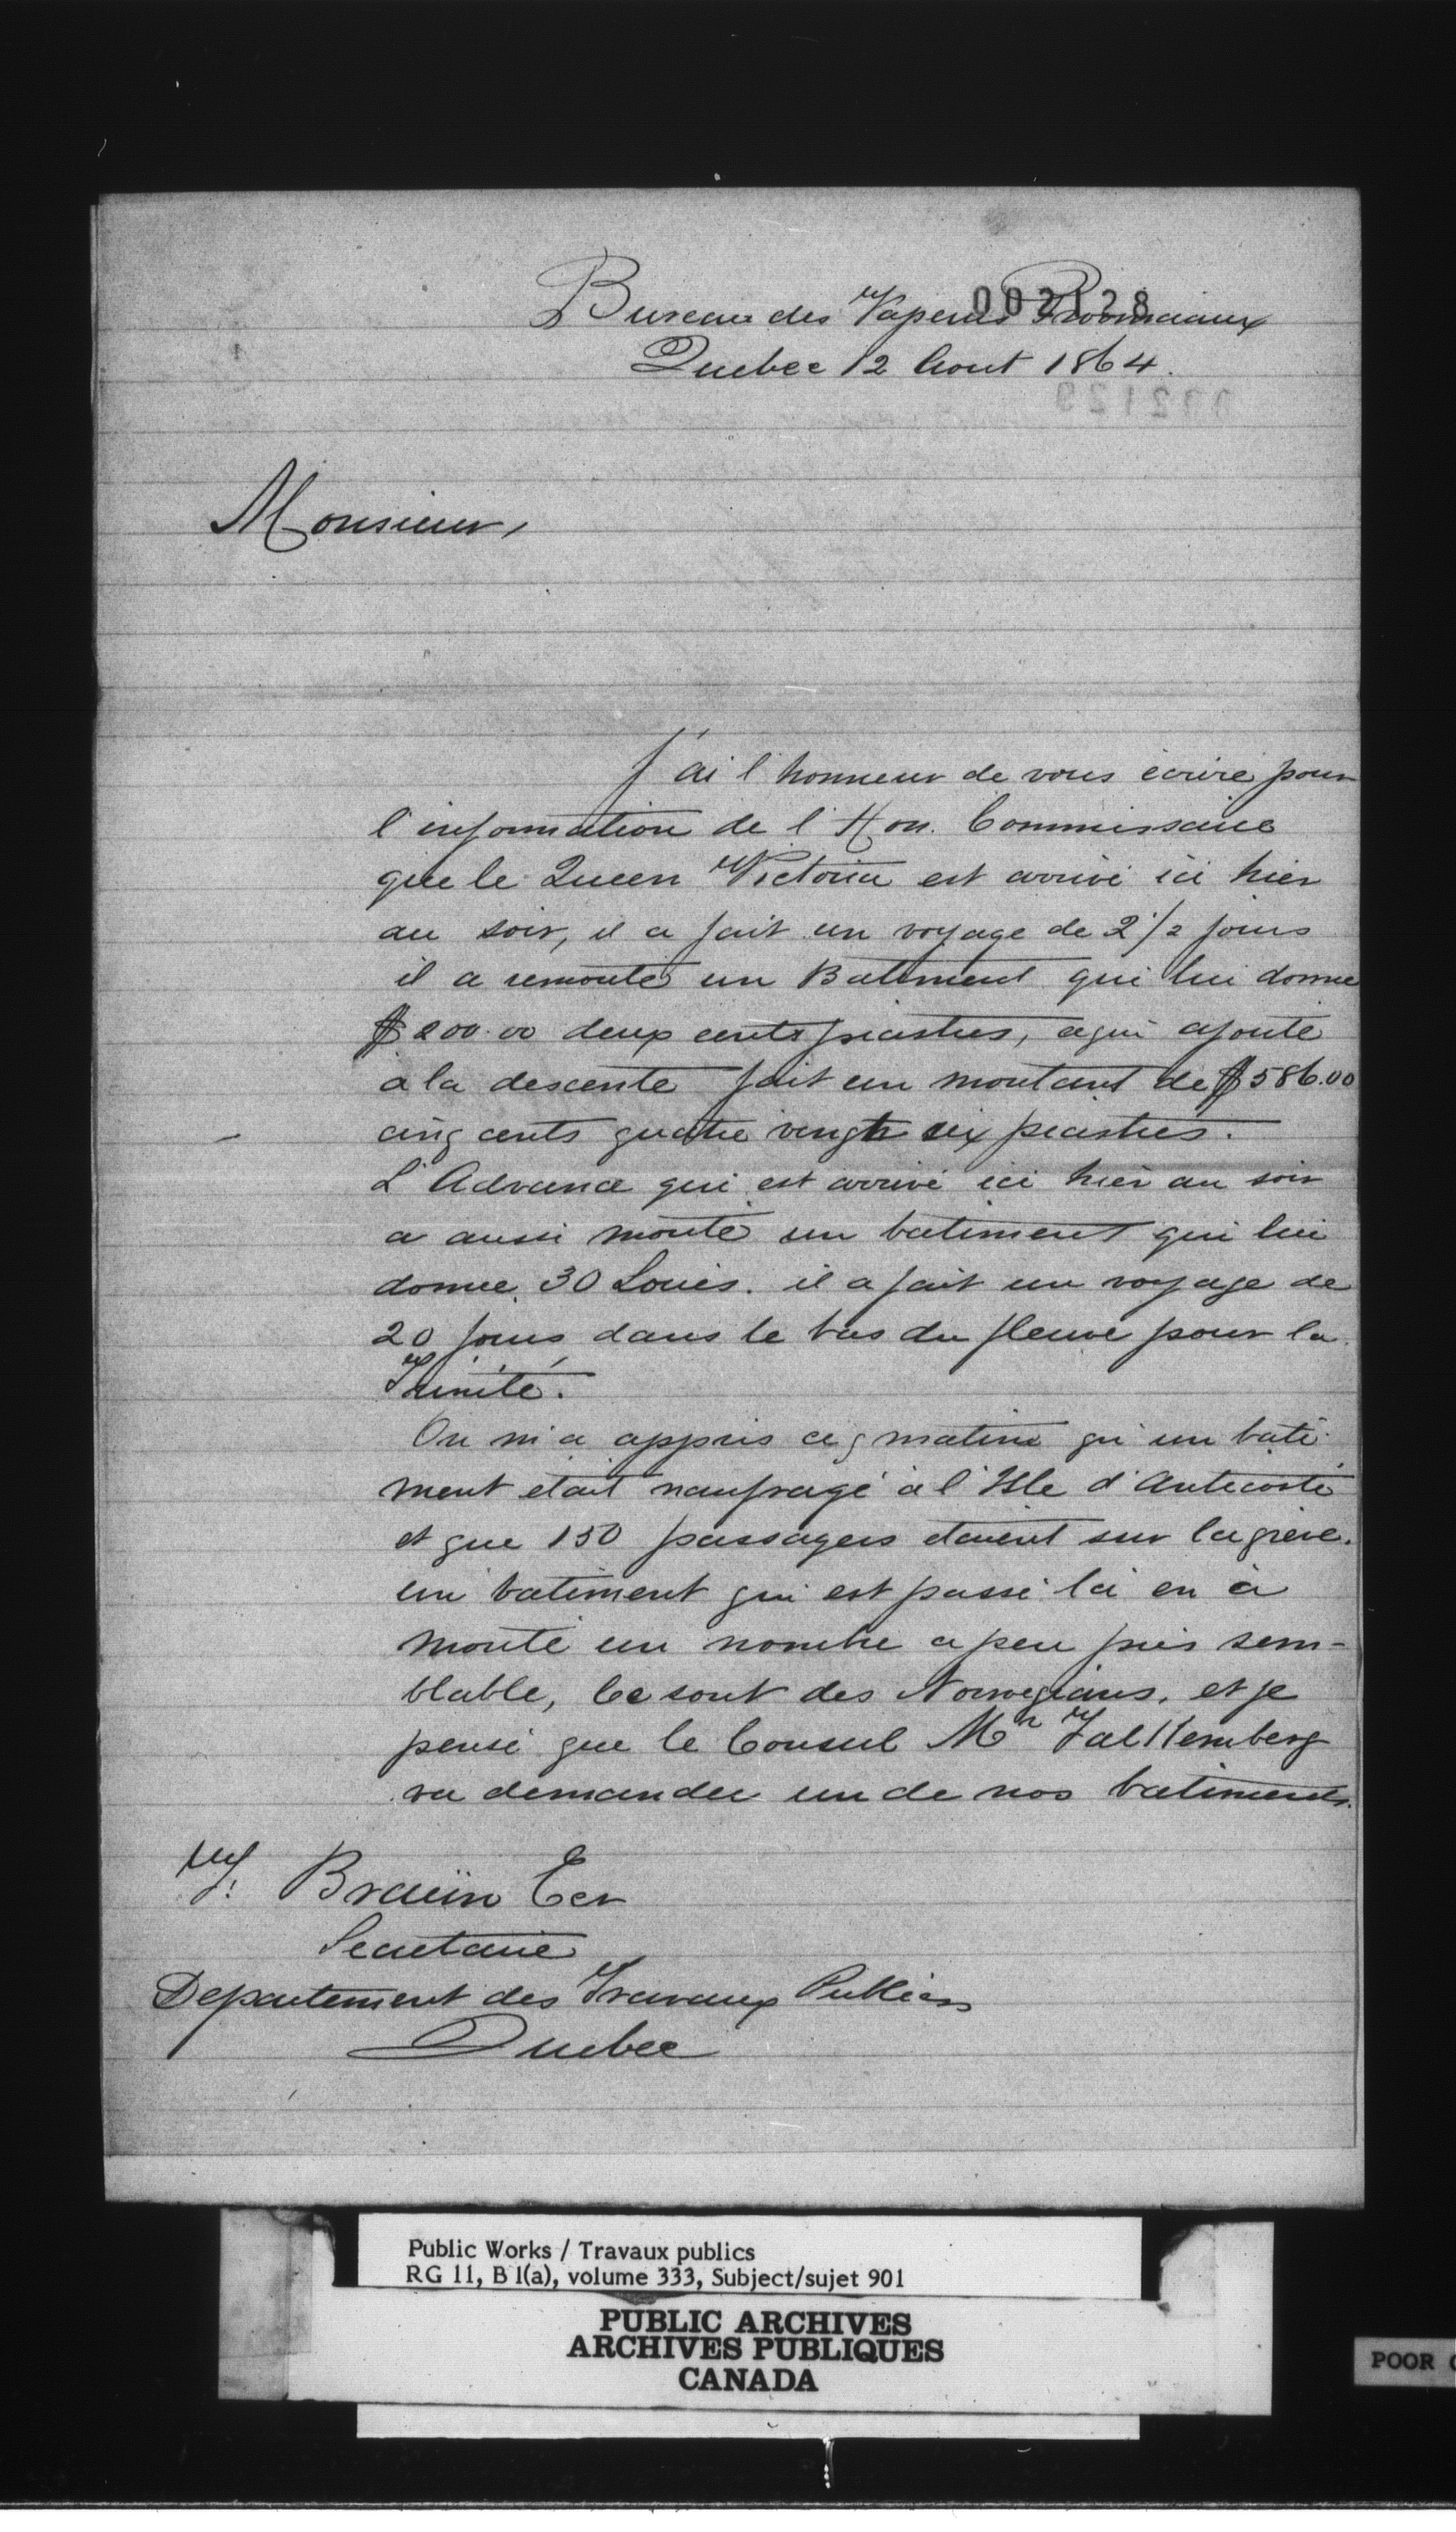 002128
Bureau des Vapeurs Provinciaux
Quebec 12 Aout 1864.
002129
Monsieur,
J'ai l'honneur de vous écrire pour
l'information de l'Hon. Commissaire
que le Queen Victoria est arrivé ici hier
au soir, il a fait un voyage de 2 1/2 jours
il a remonté un Batiment qui lui donne
$200.00 deux cents piastres, ce qui ajouté
à la descente fait un montant de $586.00
cinq cents quatre vingt six piastres.
L'Advance qui est arrivé ici hier au soir
a aussi monté un batiment qui lui
donne 30 Louis. il a fait un voyage de
20 jours dans le bas du fleuve pour la
Trinité.
On m'a appris ce matin qu'un bati-
ment était naufragé à l'Isle d'Anticosti
et que 150 passagers étaient sur la grève.
un batiment qui est passé là en a
monté un nombre a peu près sem-
blable, Ce sont des Norvegiens, et je
pense que le Consul Mr Falkemberg
va demander un de nos batiments.
F. Braün Ecr
Secretaire
Departement des Travaux Publics
Quebec
Public Works / Travaux publics
RG 11, B 1(a), volume 333, Subject/sujet 901
PUBLIC ARCHIVES
ARCHIVES PUBLIQUES
CANADA
POOR